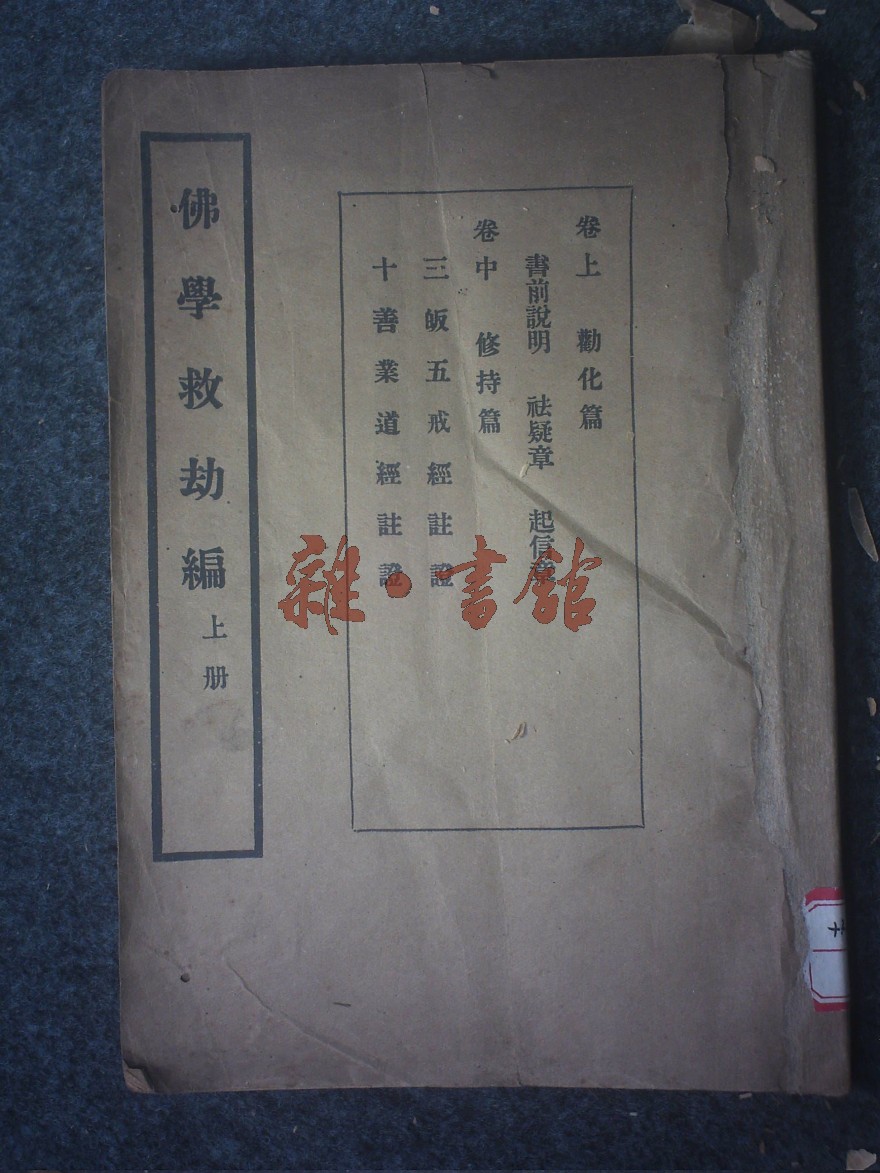 卷上 勸化篇
書前說明 祛疑章 起信章
卷中 修持篇
三皈五戒經註證
十善業道經註證
佛學救劫編 上册
雜·書館